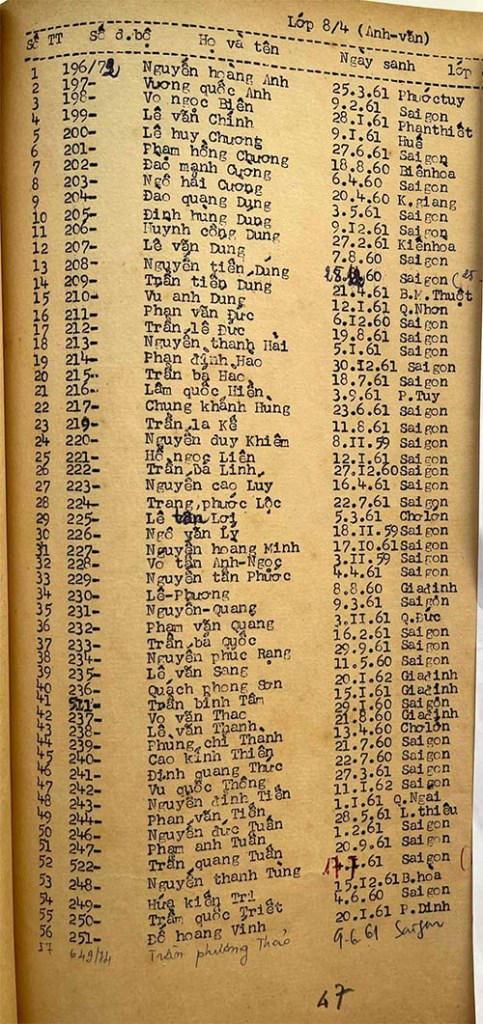 Lớp 8/4 (Anh-văn)
Số TT Số đ.bộ Họ và tên Ngày sanh lớp
1 196/72 Nguyễn hoàng Anh 25.3.61 Phướctuy
2 197- Vương quốc Anh 9.2.61 Saigon
3 198- Vo ngọc Biên 28.I.61 Phanthiết
4 199- Lê văn Chính 9.I.61 Huế
5 200- Lê huy Chương 27.6.61 Saigon
6 201- Phạm hồng Chương 18.8.60 Biênhoa
7 202- Đào mạnh Cương 6.4.60 Saigon
8 203- Ngô hải Cương 20.4.60 K.giang
9 204- Đao quang Dung 3.5.61 Saigon
10 205- Đinh hùng Dung 9.I2.61 Saigon
11 206- Huynh công Dung 27.2.61 Kiênhoa
12 207- Lê văn Dung 7.8.60 Saigon
13 208- Nguyễn tiến Dung 60 Saigon (25
14 209- Trần tiên Dung 21.4.61 B.M.Thuột
15 210- Vu anh Dung 12.I.61 Q.Nhơn
16 211- Phan văn Đức 6.I2.60 Saigon
17 212- Trần lê Đức 19.8.61 Saigon
18 213- Nguyễn thanh Hải 5.I.61 Saigon
19 214- Phan định Hao 30.I2.61 Saigon
20 215- Trần bá Hao 18.7.61 Saigon
21 216- Lâm quốc Hiền 3.9.61 P.Tuy
22 217- Chung khánh Hung 23.6.61 Saigon
23 219- Trần la Kế 11.8.61 Saigon
24 220- Nguyễn duy Khiêm 8.II.59 Saigon
25 221- Hồ ngọc Liên 12.I.61 Saigon
26 222- Trần bá Linh 27.I2.60 Saigon
27 223- Nguyễn cao Luy 16.4.61 Saigon
28 224- Trang phước Lộc 22.7.61 Saigon
29 225- Lê tân Lợi 5.3.61 Cholon
30 226- Ngô văn Lý 18.II.59 Saigon
31 227- Nguyễn hoang Minh 17.I0.61 Saigon
32 228- Vo tấn Anh-Ngọc 3.II.59 Saigon
33 229- Nguyễn tấn Phước 4.4.61 Saigon
34 230- Lê-Phương 8.8.60 Giadinh
35 231- Nguyễn-Quang 9.3.61 Saigon
36 232- Phạm văn Quang 3.II.61 Q.Đức
37 233- Trần bá Quốc 16.2.61 Saigon
38 234- Nguyễn phúc Rạng 29.9.61 Saigon
39 235- Lê văn Sang 11.5.60 Saigon
40 236- Quách phong Sơn 20.I.62 Giadinh
41 511- Trần bình Tâm 15.I.61 Giadinh
42 237- Vo văn Thac 29.I.60 Saigon
43 238- Lê văn Thanh 21.8.60 Giadinh
44 239- Phung chi Thanh 13.4.60 Cholon
45 240- Cao kính Thiên 21.7.60 Saigon
46 241- Định quang Thưc 22.7.60 Saigon
47 242- Vu quốc Thông 27.3.61 Saigon
48 243- Nguyễn đình Tiến 11.I.62 Saigon
49 244- Phan văn Tiên 1.I.61 Q.Ngai
50 246- Nguyễn đức Tuấn 28.5.61 L.thiêu
51 247- Phạm anh Tuấn 1.2.61 Saigon
52 522- Trần quang Tuấn 20.9.61 Saigon
53 248- Nguyễn thanh Tùng 17.I.61 Saigon (
54 249- Hứa kiến Trì 15.I2.61 B.hoa
55 250- Trầm quốc Triết 4.6.60 Saigon
56 251- Đỗ hoang Vinh 20.I.61 P.Dinh
57 649/74 Trần phương Thảo 9-6-61 Saigon
47